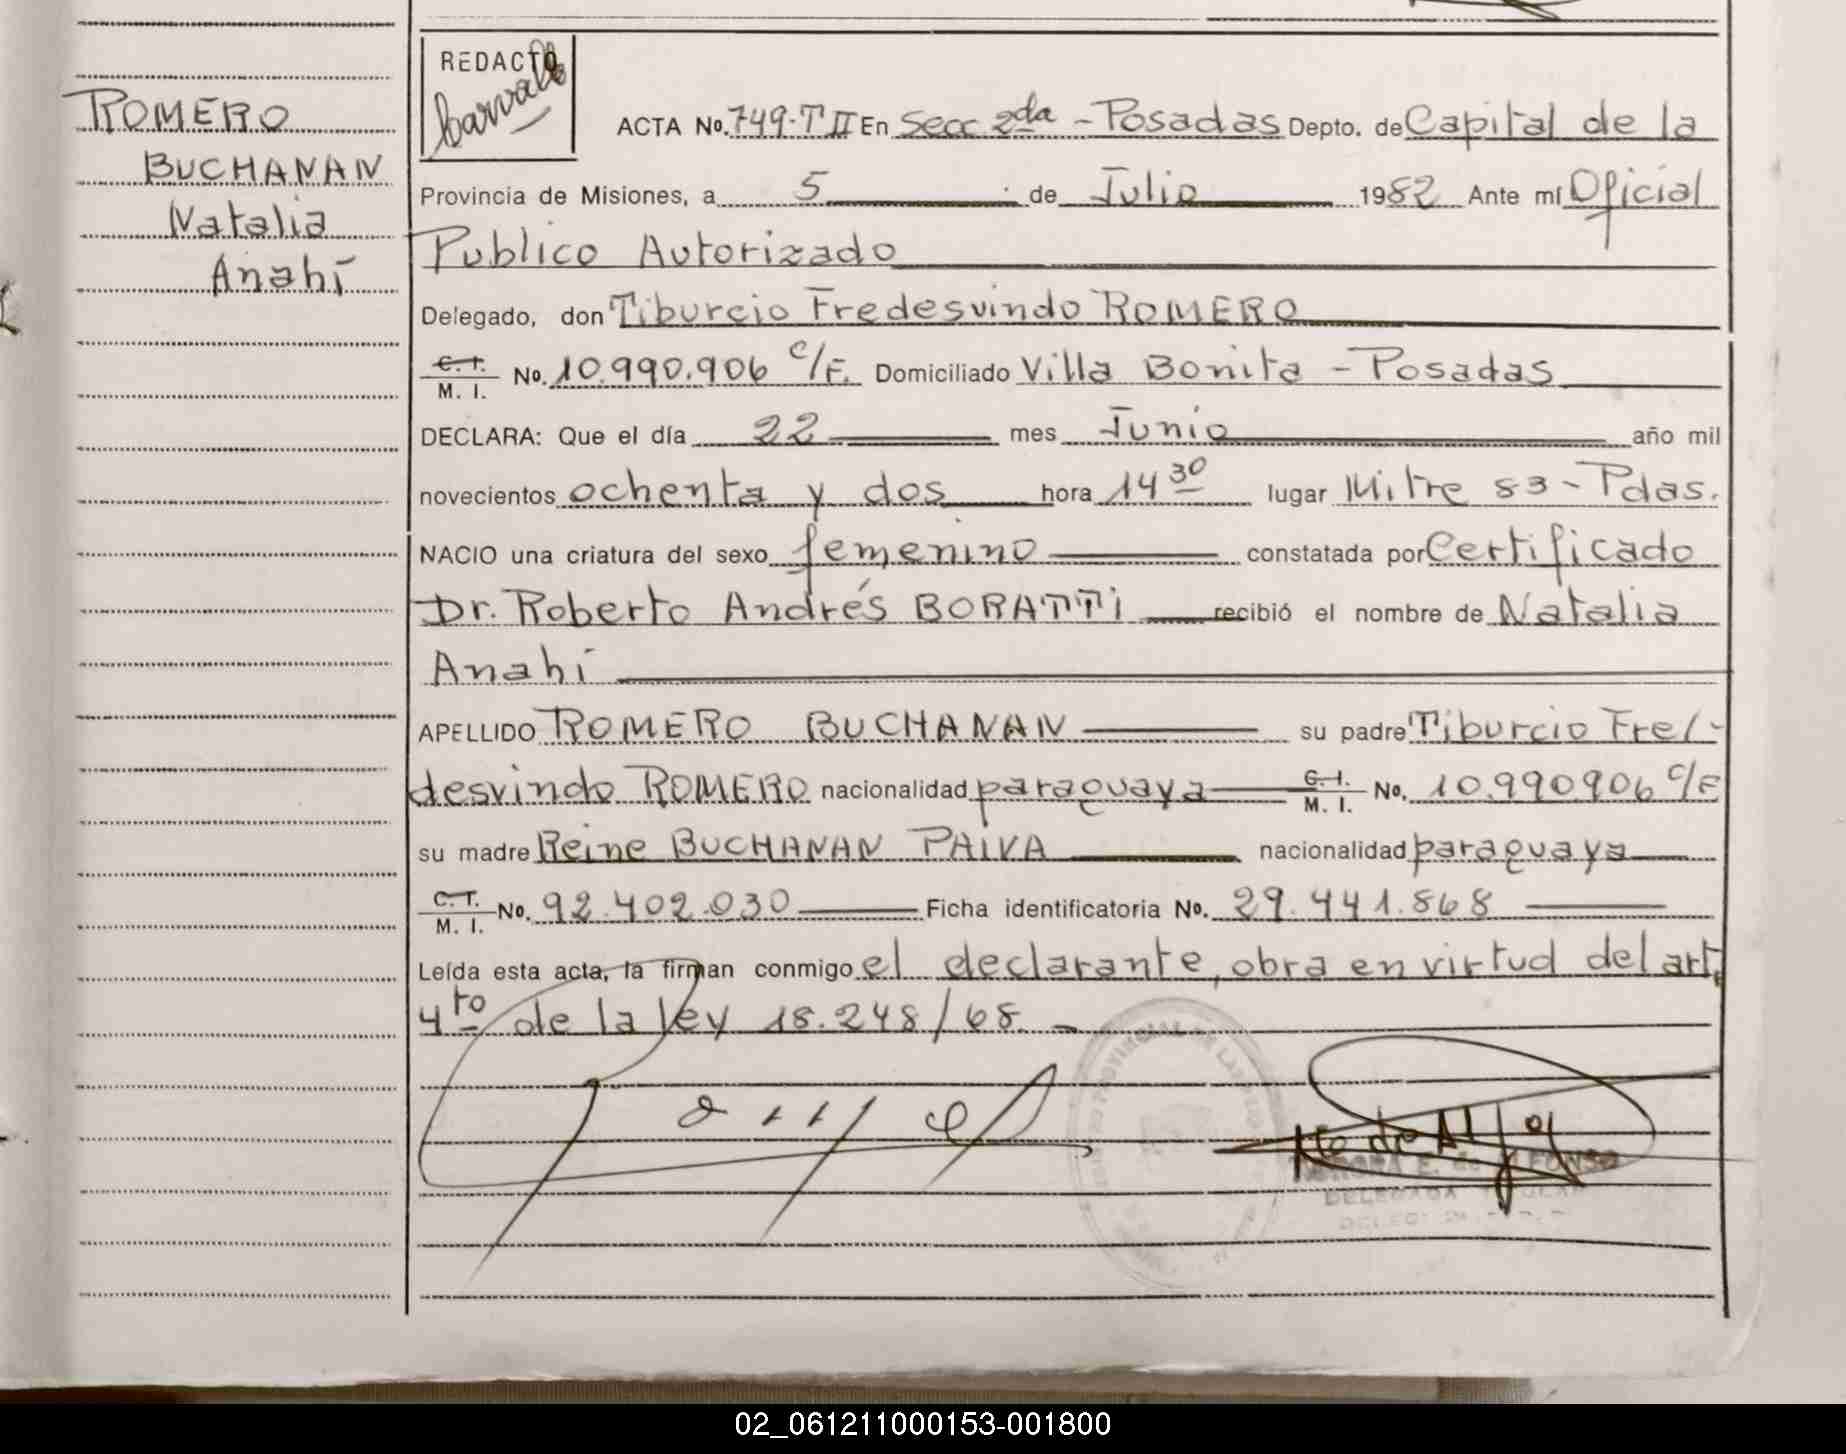 ROMERO
BUCHANAN
Natalia
Anahí
REDACTO
ACTA No. 749-T II En Secc 2da - Posadas Depto. de Capital de la
Provincia de Misiones, a 5 de Julio 1982 Ante mí Oficial
Publico Autorizado
Delegado, don Tiburcio Fredesvindo ROMERO
C.I. M.I. No. 10.990.906 C/F. Domiciliado Villa Bonita - Posadas
DECLARA: Que el día 22 mes Junio año mil
novecientos ochenta y dos hora 14 30 lugar Mitre 83 - Pdas.
NACIO una criatura del sexo femenino constatada por Certificado
Dr. Roberto Andrés BORATTI recibió el nombre de Natalia
Anahí
APELLIDO ROMERO BUCHANAN su padre Tiburcio Fre/-
desvindo ROMERO nacionalidad paraguaya C.I. M.I. No. 10.990.906 C/F
su madre Reine BUCHANAN PAIVA nacionalidad paraguaya
C.I. M.I. No. 92.402.030 Ficha identificatoria No. 29.441.868
Leída esta acta, la firman conmigo el declarante, obra en virtud del art.
4to de la ley 18.248/68. -
DELEGADA TITULAR
02_061211000153-001800